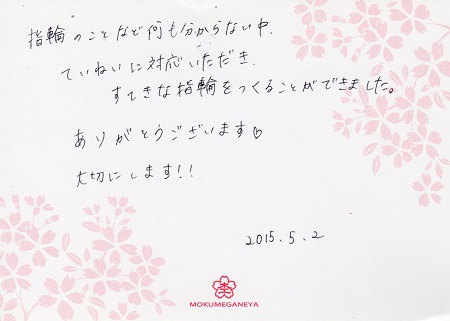 指輪のことなど何も分からない中、
ていねいに対応いただき、
すてきな指輪をつくることができました。
ありがとうございます♡
大切にします!!
2015.5.2
杢
MOKUMEGANEYA